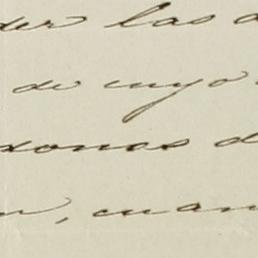 der las
de cuyo
donos d
, cuan